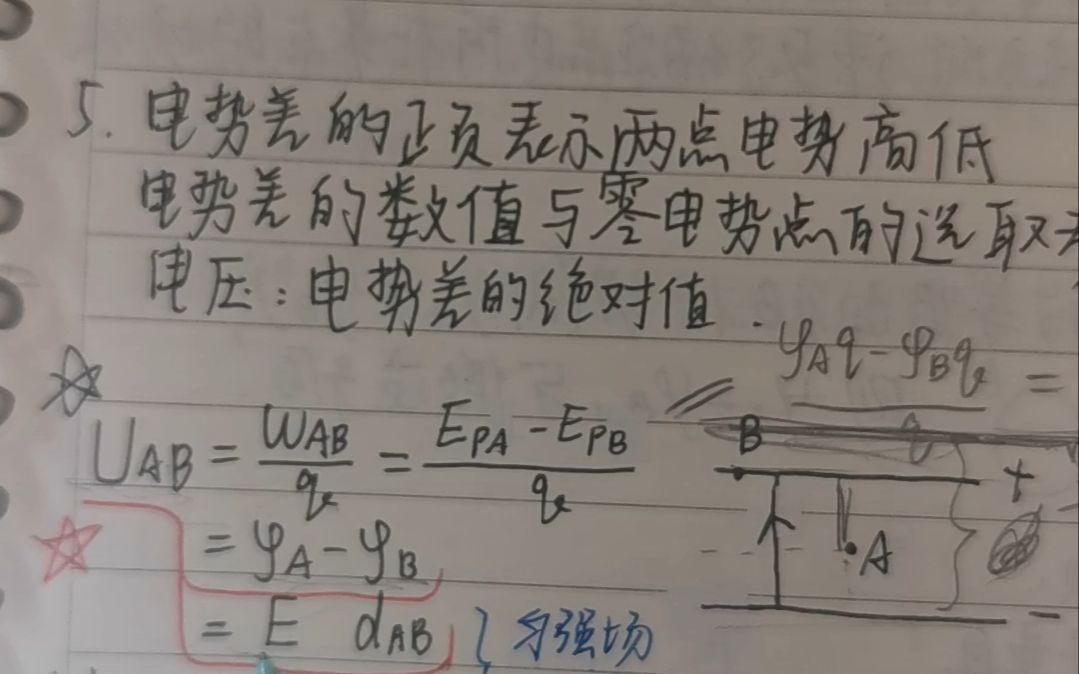 5. 电势差的正负表示两点电势高低
电势差的数值与零电势点的选取
电压：电势差的绝对值.
φAq-φBq =
U_AB = W_AB/q = (E_PA - E_PB)/q
B
+
= φ_A - φ_B
A
= E d_AB } 匀强场
-